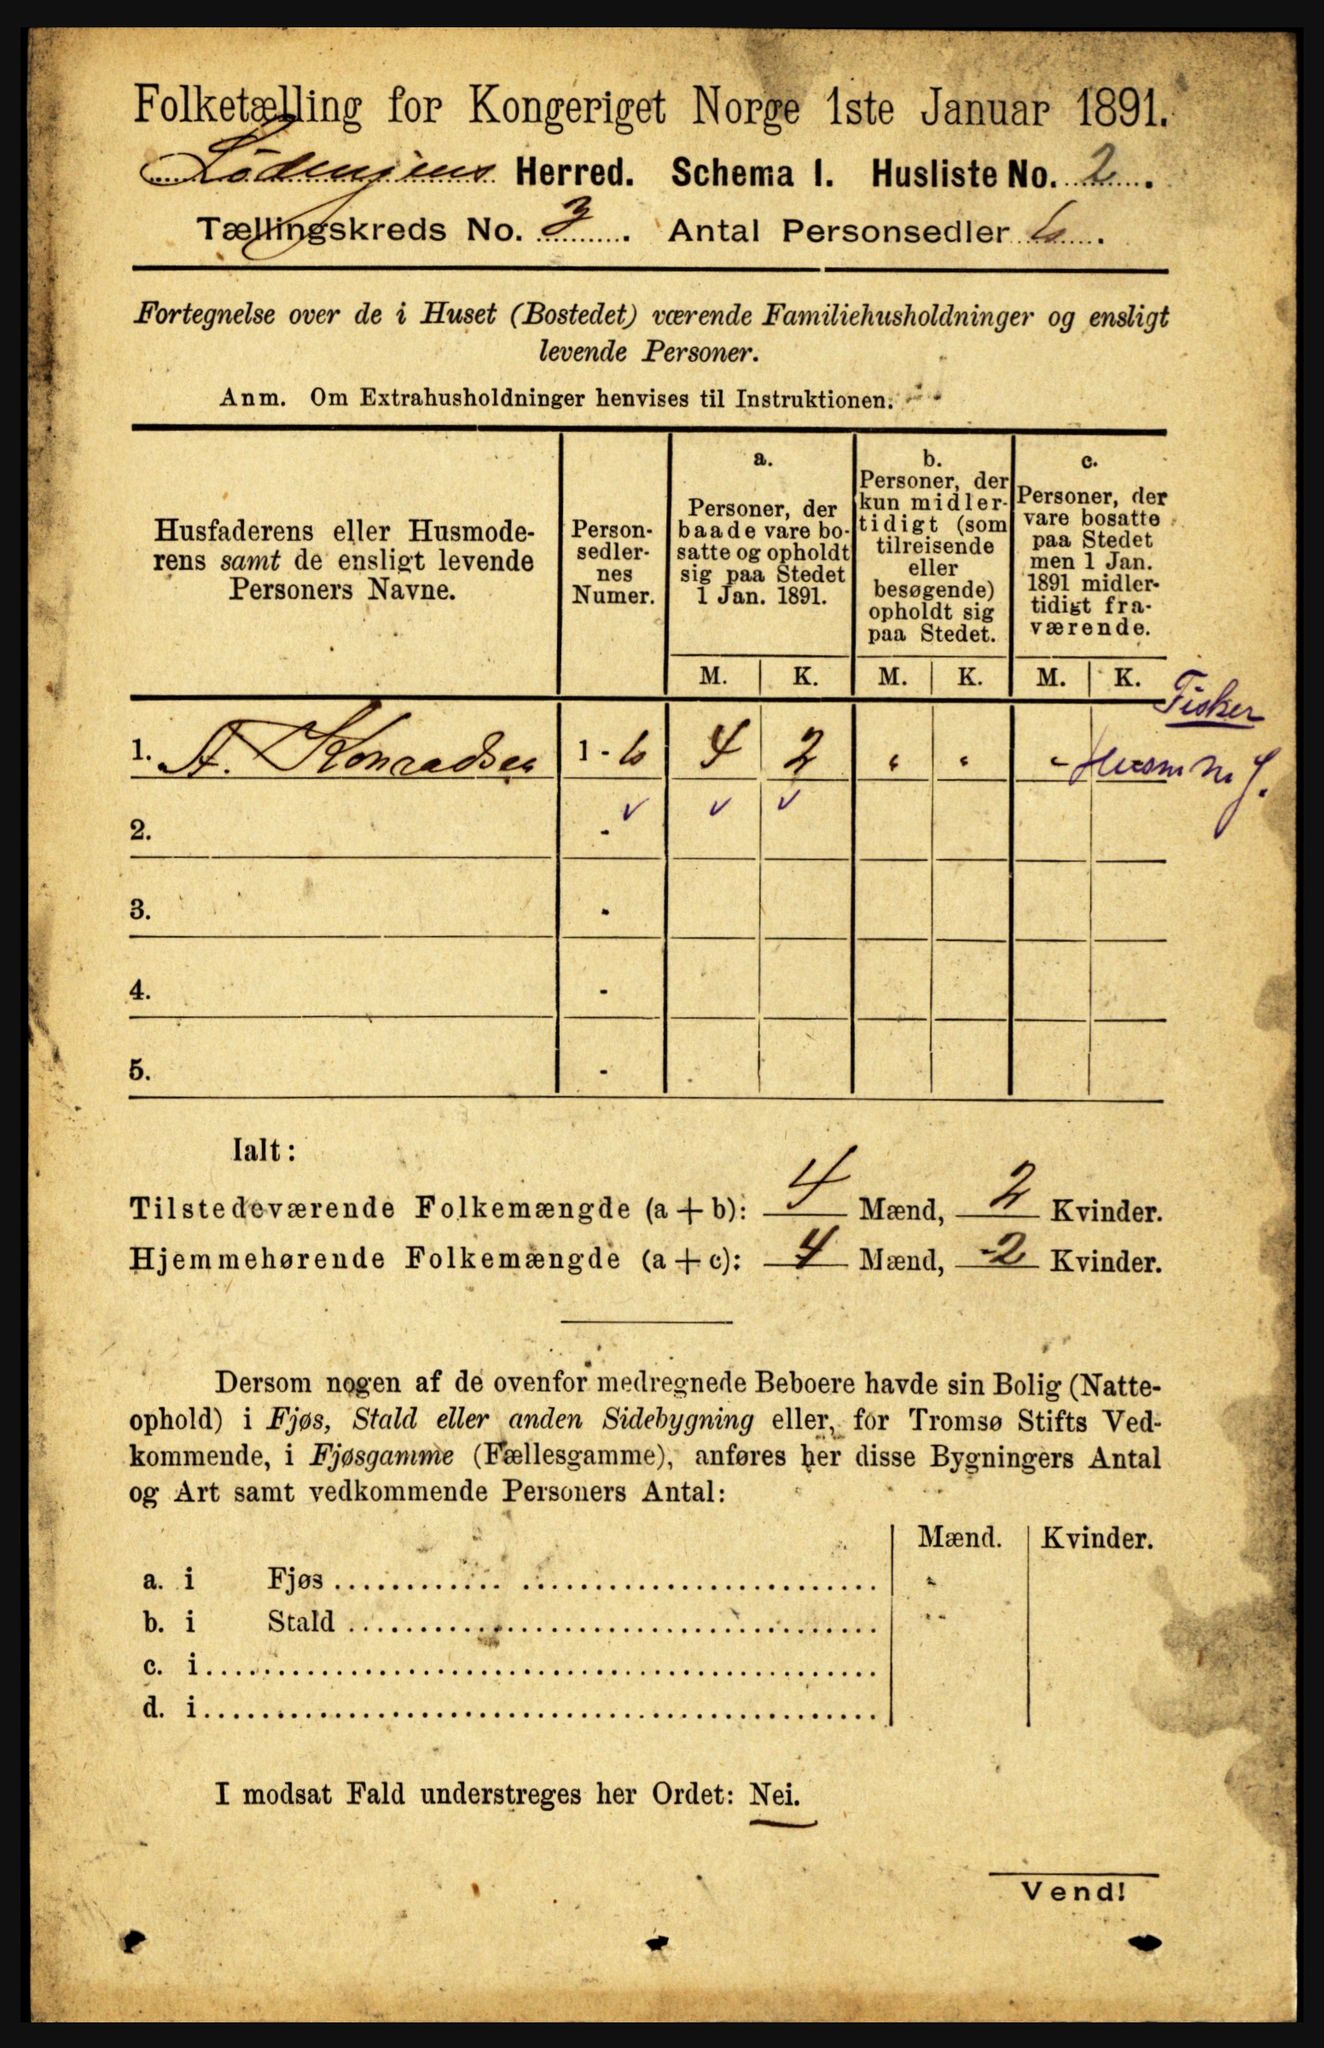 Folketælling for Kongeriget Norge 1ste Januar 1891.
Lødingens Herred. Schema I. Husliste No. 2.
Tællingskreds No. 3. Antal Personsedler 6.
Fortegnelse over de i Huset (Bostedet) værende Familiehusholdninger og ensligt
levende Personer.
Anm. Om Extrahusholdninger henvises til Instruktionen.
Husfaderens eller Husmode-
rens samt de ensligt levende
Personers Navne.
Person-
sedler-
nes
Numer.
a.
Personer, der
baade vare bo-
satte og opholdt
sig paa Stedet
1 Jan. 1891.
b.
Personer, der
kun midler-
tidigt (som
tilreisende
eller
besøgende)
opholdt sig
paa Stedet.
c.
Personer, der
vare bosatte
paa Stedet
men 1 Jan.
1891 midler-
tidigt fra-
værende.
M. K. M. K. M. K.
Fisker
1. A. Konradsen 1 - 6 4 2 " " " Husm m J.
2. - ✓ ✓ ✓
3. -
4. -
5. -
Ialt:
Tilstedeværende Folkemængde (a + b): 4 Mænd, 2 Kvinder.
Hjemmehørende Folkemængde (a + c): 4 Mænd, 2 Kvinder.
Dersom nogen af de ovenfor medregnede Beboere havde sin Bolig (Natte-
ophold) i Fjøs, Stald eller anden Sidebygning eller, for Tromsø Stifts Ved-
kommende, i Fjøsgamme (Fællesgamme), anføres her disse Bygningers Antal
og Art samt vedkommende Personers Antal:
Mænd. Kvinder.
a. i Fjøs "
b. i Stald "
c. i
d. i
I modsat Fald understreges her Ordet: Nei.
Vend!